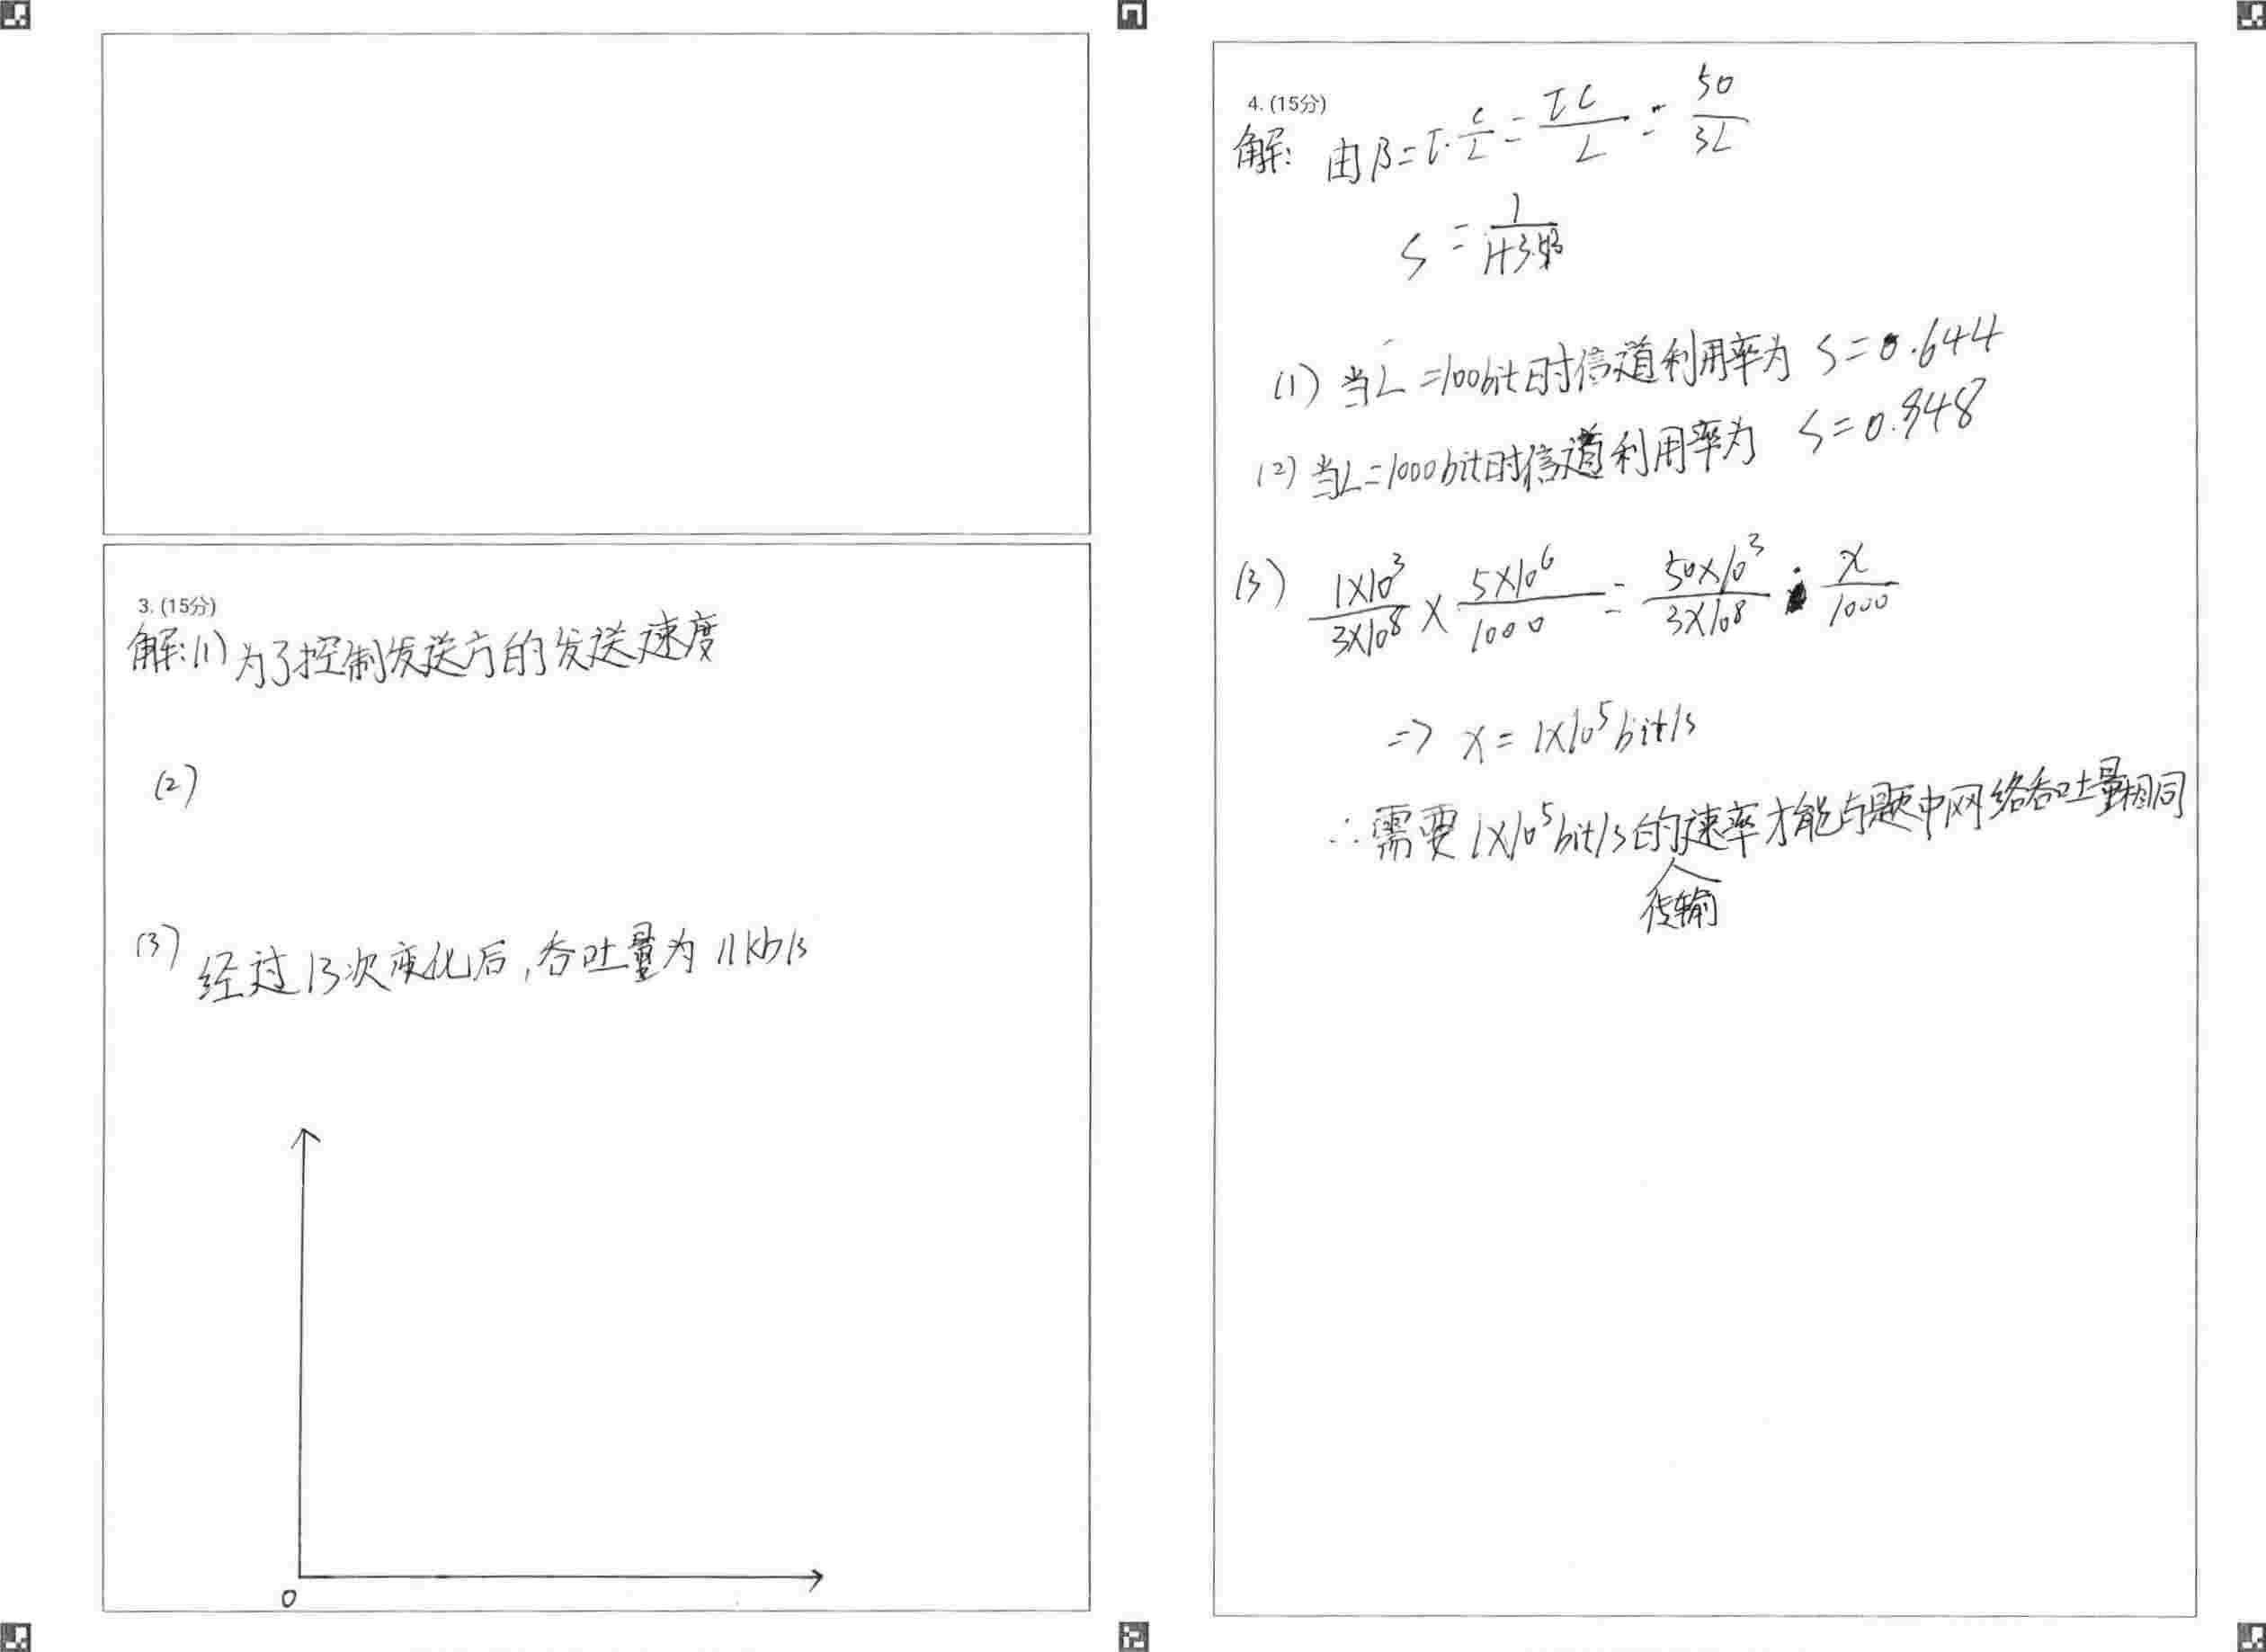 3. (15分)
解:(1)为了控制发送方的发送速度
(2)
(3) 经过13次变化后,吞吐量为 11kb/s
0
4. (15分)
解: 由β=τ·C/L=τC/L=50/3L
S=
(1) 当L=100bit时信道利用率为 S=0.644
(2) 当L=1000bit时信道利用率为 S=0.948
(3) 1×10³/3×10⁸ × 5×10⁶/1000 = 50×10³/3×10⁸ · x/1000
=> x=1×10⁵bit/s
∴需要1×10⁵bit/s的传输速率才能与题中网络吞吐量相同